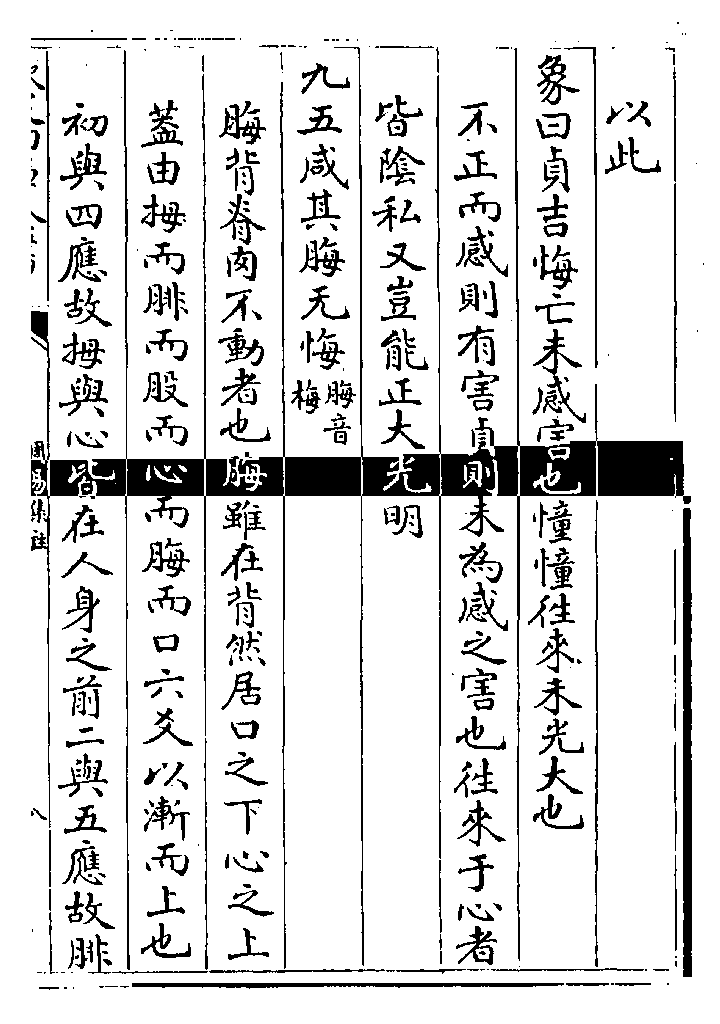 以此
象曰貞吉悔亡未感害也憧憧徃來未光大也
不正而感則有害貞則未為感之害也徃來于心者
皆陰私又豈能正大光明
九五咸其脢无悔脢音梅
脢背脊肉不動者也脢雖在背然居口之下心之上
葢由拇而腓而股而心而脢而口六爻以漸而上也
初與四應故拇與心皆在人身之前二與五應故腓
周易集註
八